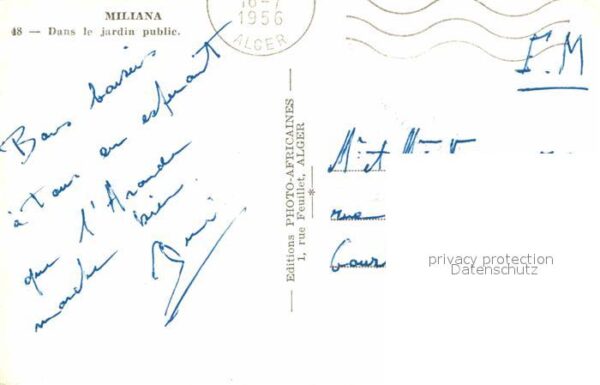 MILIANA
48 — Dans le jardin public.
16-7
1956
ALGER
Bons baisers
à Tous en espérant
que l'Aronde
marche bien.
Editions PHOTO-AFRICAINES —
1, rue Feuillet, ALGER
F.M
Mr et Mme
rue
Cour
privacy protection
Datenschutz